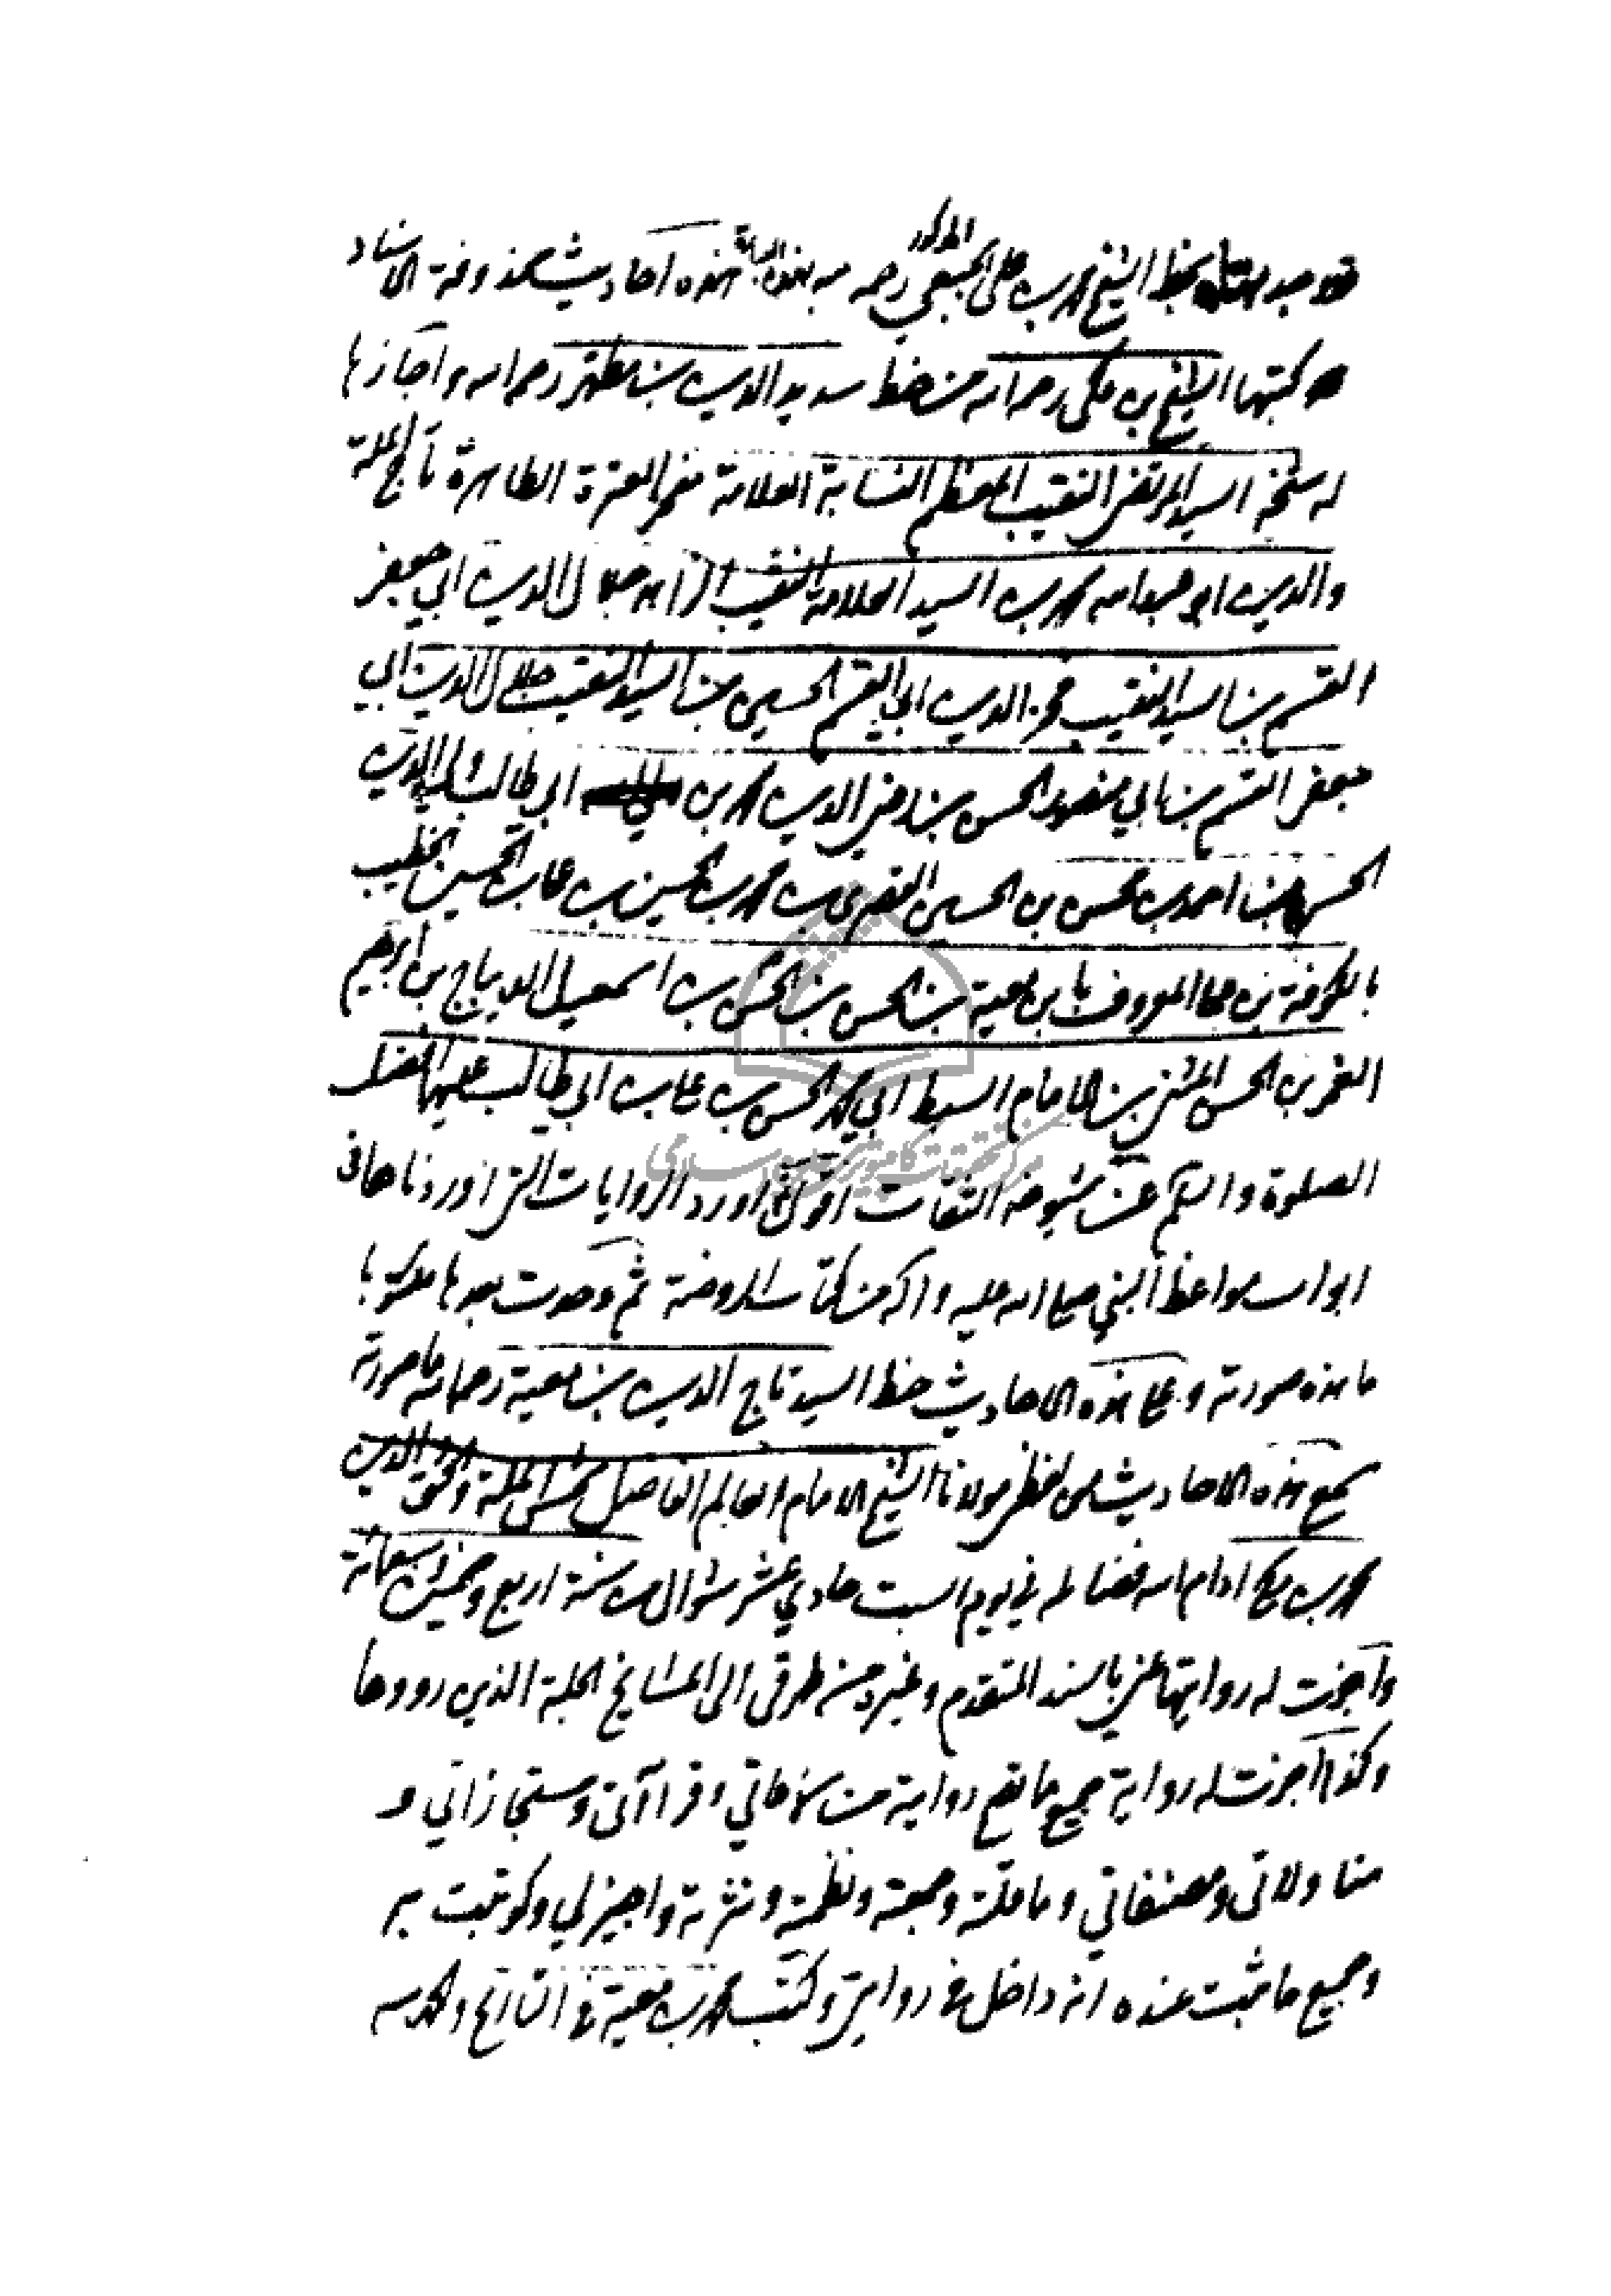 ووجد بخط الشيخ محمد بن على الجبعي المذكور رحمه الله هذه احاديث محذوفة الاسناد
كتبها الشيخ بن مكى رحمه الله من خط سديد الدين بن مطهر رحمه الله واجازها
له شيخه السيد المرتضى النقيب المعظم النسابة العلامة مفخر العترة الطاهرة تاج الملة
والدين ابو عبد الله محمد بن السيد العلامة النقيب الزاهد جلال الدين ابي جعفر
القسم بن السيد النقيب فخر الدين ابي القسم الحسين بن السيد النقيب جلال الدين ابي
جعفر القسم بن ابي منصور الحسن بن رضي الدين محمد بن ابي طالب ولي الدين
الحسن بن احمد بن محسن بن الحسين القصري بن محمد بن الحسين بن علي بن الحسين الخطيب
بالكوفة بن علي المعروف بابن معية بن الحسن بن الحسن بن اسمعيل الديباج بن ابرهيم
الغمر بن الحسن المثنى بن الامام السبط ابي محمد الحسن بن علي بن ابي طالب عليهما افضل
الصلوة والسلم عن شيوخه الثقات اقول ثم اورد الروايات التى اوردناها في
ابواب مواعظ النبي صلى الله عليه واله من كتاب الروضة ثم وجدت بعدها مكتوبا
ما هذه صورته وعلى هذه الاحاديث خط السيد تاج الدين بن معية رحمه الله ما صورته
سمع هذه الاحاديث من لفظي مولانا الشيخ الامام العالم الفاضل شمس الملة والحق والدين
محمد بن مكي ادام الله فضائله في يوم السبت حادي عشر شوال من سنة اربع وخمسين وسبعمائة
واجزت له روايتها عني بالسند المتقدم وغيره من طرقي الى المشايخ الجلة الذين رووها
وكذا اجزت له رواية جميع ما تصح روايته من سماعاتي وقراآتي ومستجازاتي و
مناولاتي ومصنفاتي وما قلته وجمعته ونظمته ونثرته واجيز لي وكوتبت به
وجميع ما ثبت عنده انه داخل في روايتي وكتب محمد بن معية في التاريخ والحمد لله
مركز تحقيقات كامپيوتری علوم اسلامی